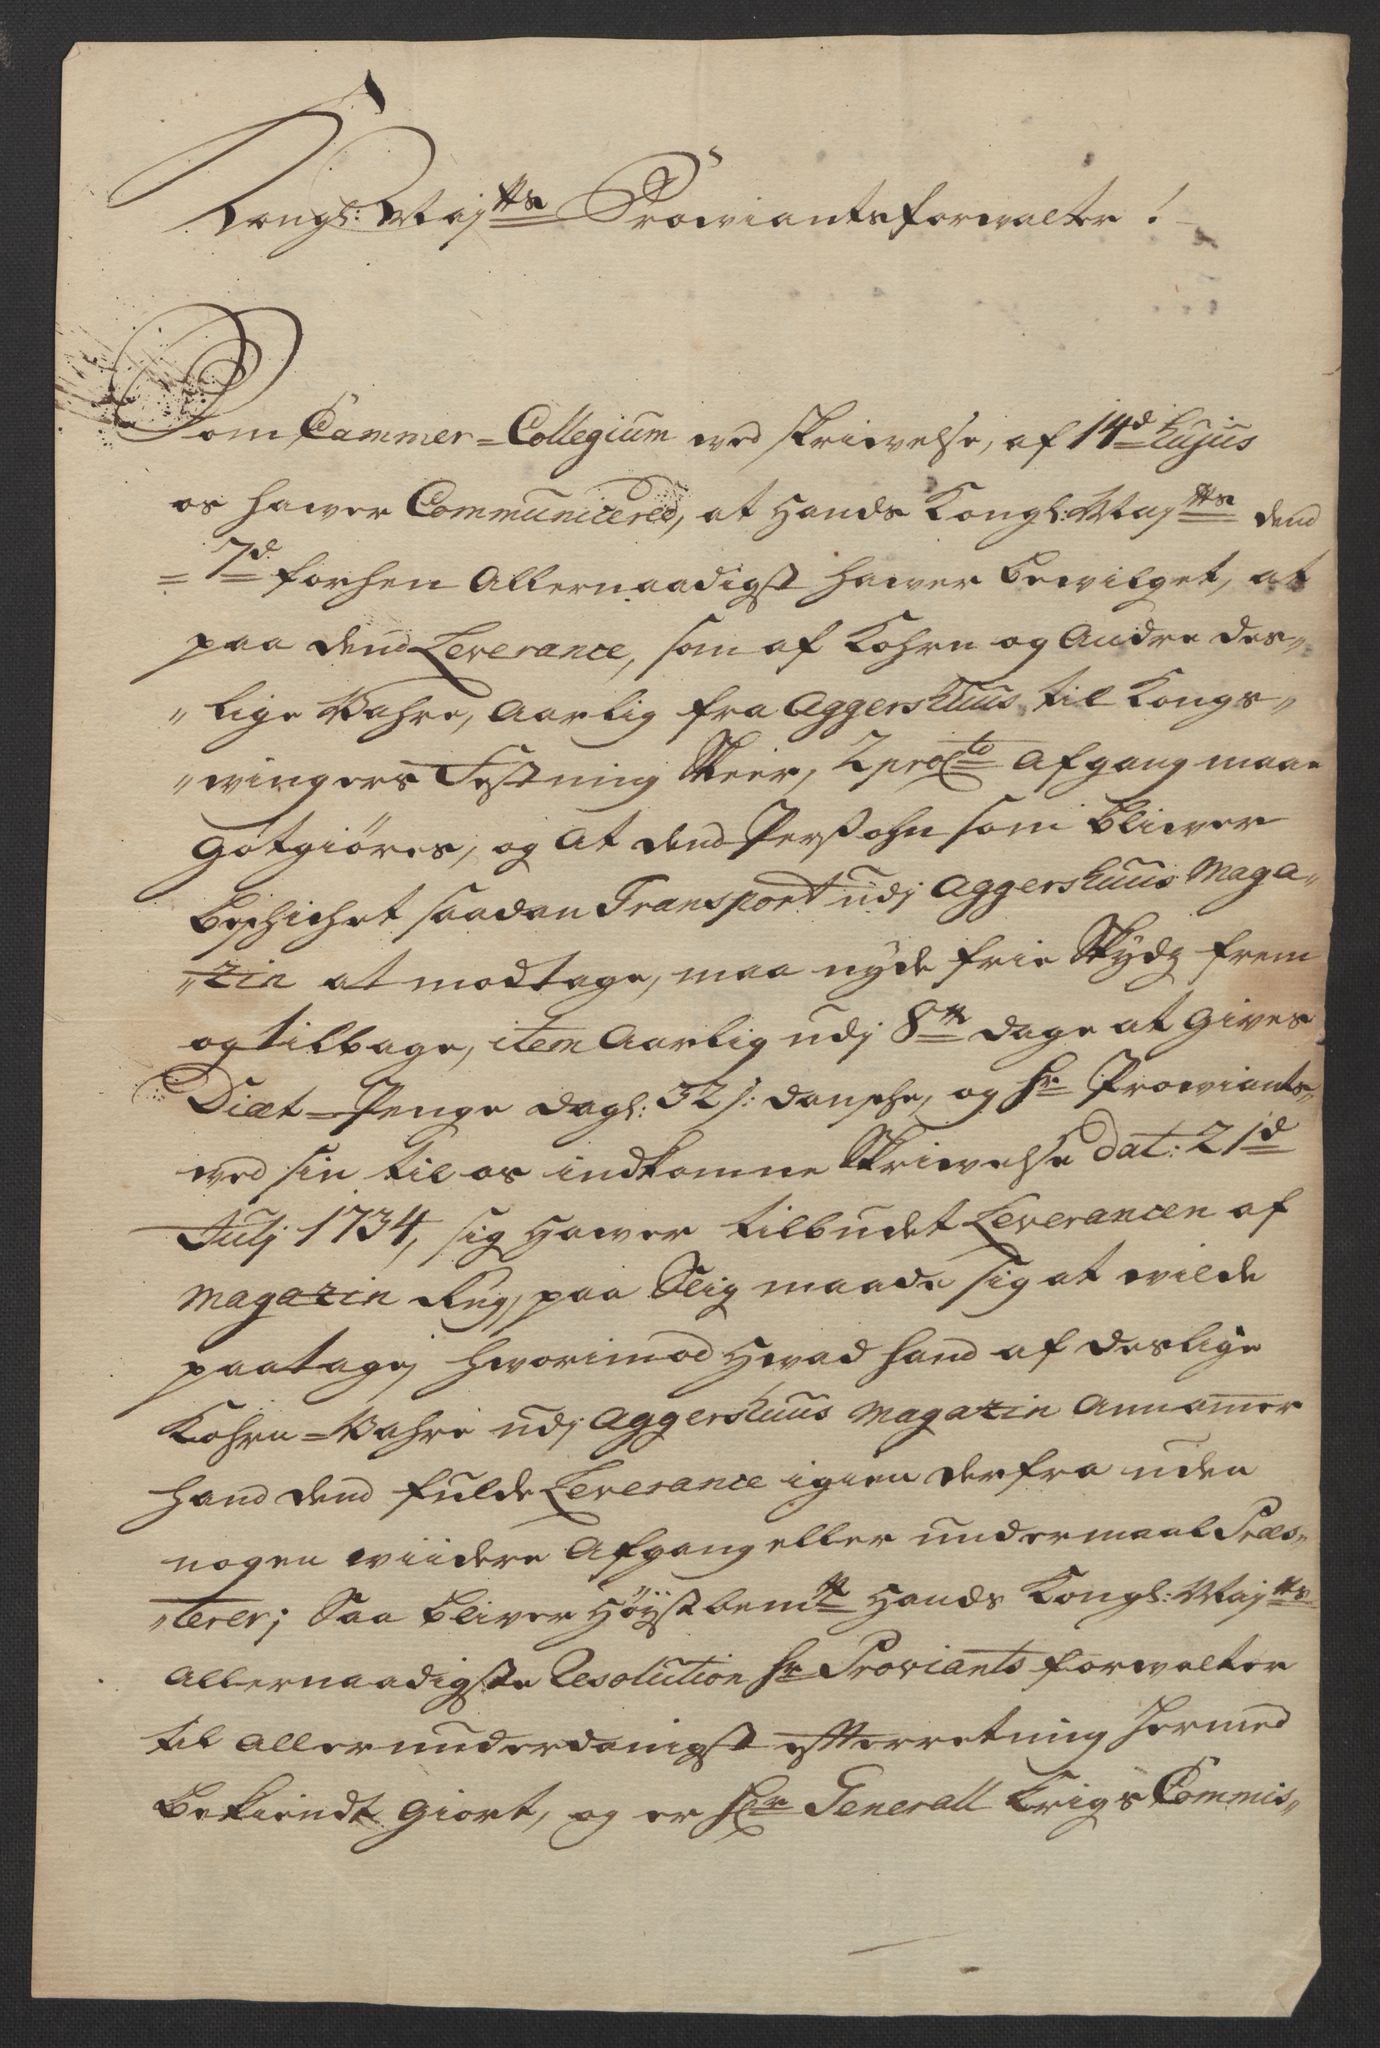 Kongl: Maj<sup>tts</sup> Prowiantsforwalter!
Som Cammer=Collegium ved skrivelse, af 14<sup>d</sup> hujus
os hawer Communicered, at Hands Kongl: Maj<sup>tts</sup> dend
=7<sup>d</sup> forhen Allernaadigst hawer bewilget, at
paa dend Leverance, som af Kohrn og Andre des„
„lige Wahre, Aarlig fra Aggershuus til Kongs„
„wingers Festning skeer, 2 proC<sup>to</sup> Afgang maae
Gotgiöres, og at dend Persohn som bliwer
beschichet saadan Transport udj Aggershuus Maga„
„zin at modtage, maa nyde frie Skydz frem
og tilbage, item Aarlig udj 8<sup>tt</sup> dage at Gives
Diæt=Penge dagl: 32 s: dansche, og Hr Prowiants„
wed sin til os indkomne Skriwelse dat: 21<sup>d</sup>
Julj 1734, sig hawer tilbudet Leverancen af
Magazin Rug, paa Slig maade sig at wilde
paatage, hworimod Hwad hand af deslige
Kohrn=Wahre udj Aggershuus Magazin Annamer
hand dend fulde Leverance igien derfra uden
nogen wiidere Afgang eller undermaal Præs„
„terer; Saa bliver Höystbem<sup>te</sup> Hands Kongl: Maj<sup>tts</sup>
Allernaadigste Resolution Hr Proviantsforwalter
til Allerunderdanigst efterretning hermed
bekiendt Giort, og er Hr Generall Krigs Commis„